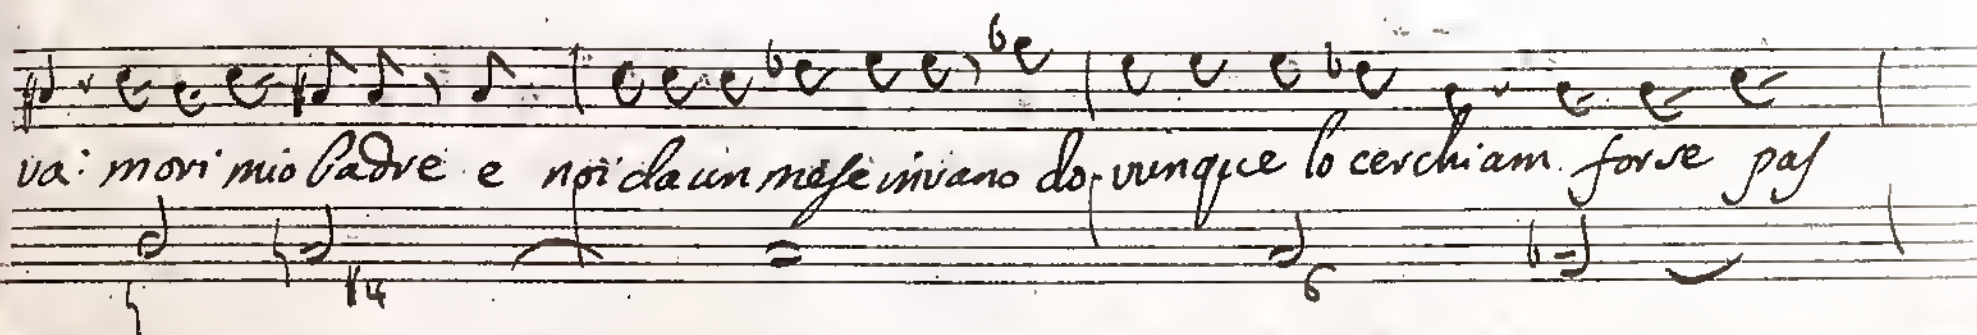 va. mori mio Padre e noi da un mese invano do vunque lo cerchiam. forse pas
6